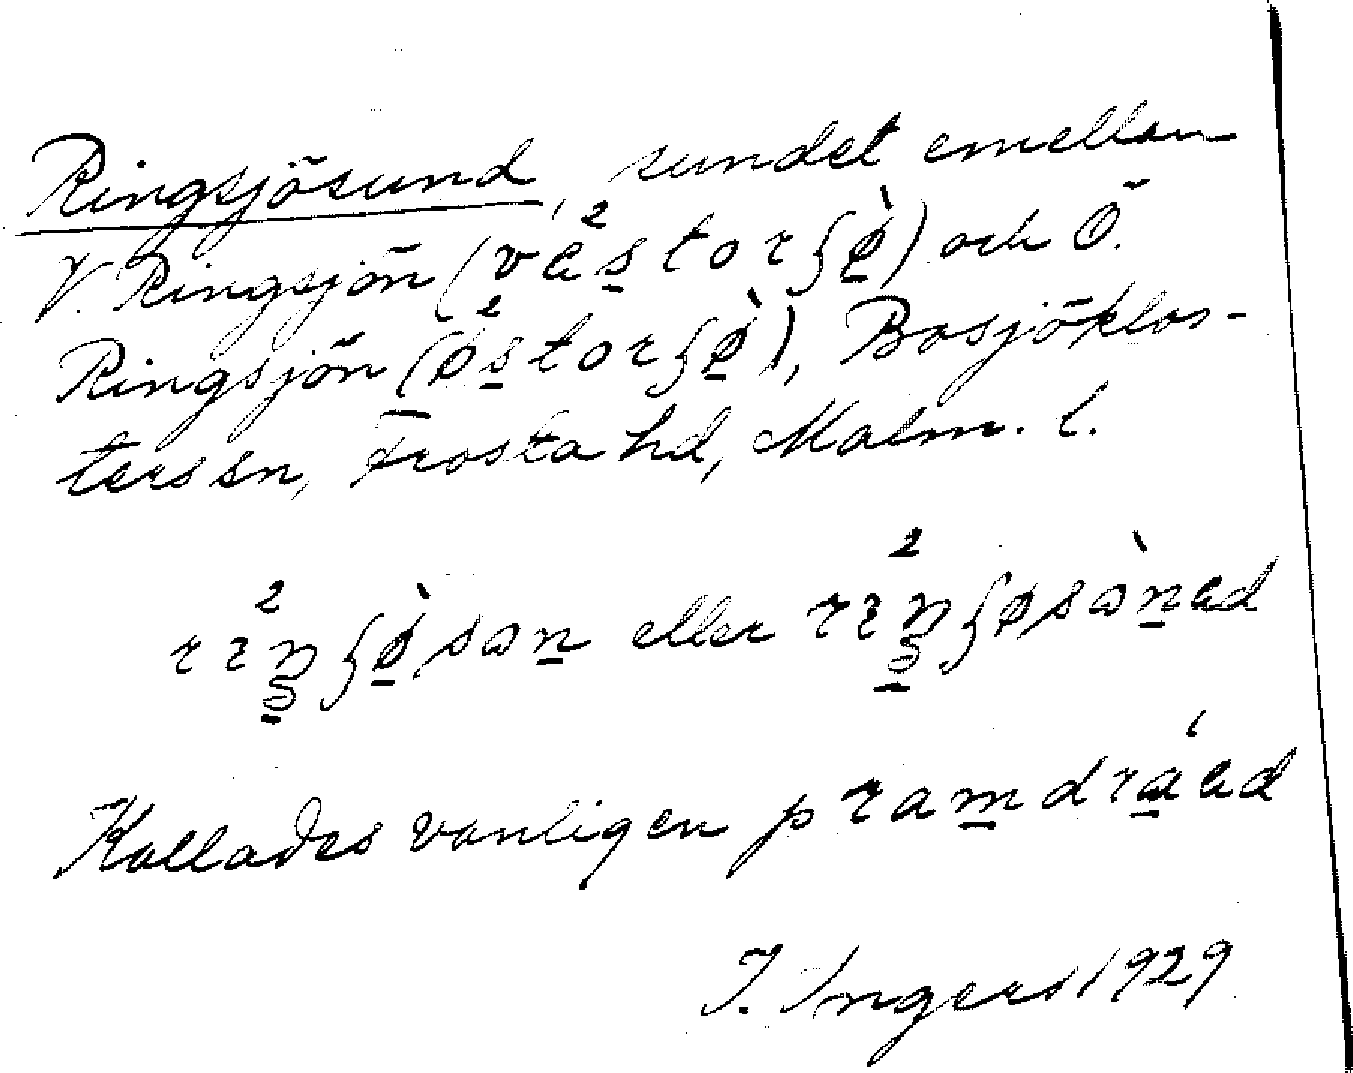 Ringsjösund, sundet emellan
V. Ringsjön (västorʃø̀) och Ö.
Ringsjön (østorʃø̀), Bosjöklos-
ters sn, Frosta hd, Malm. l.
rɪŋʃø̀son eller rɪŋʃøsònəd
Kallades vanligen pramdráəd
I. Ingers 1929